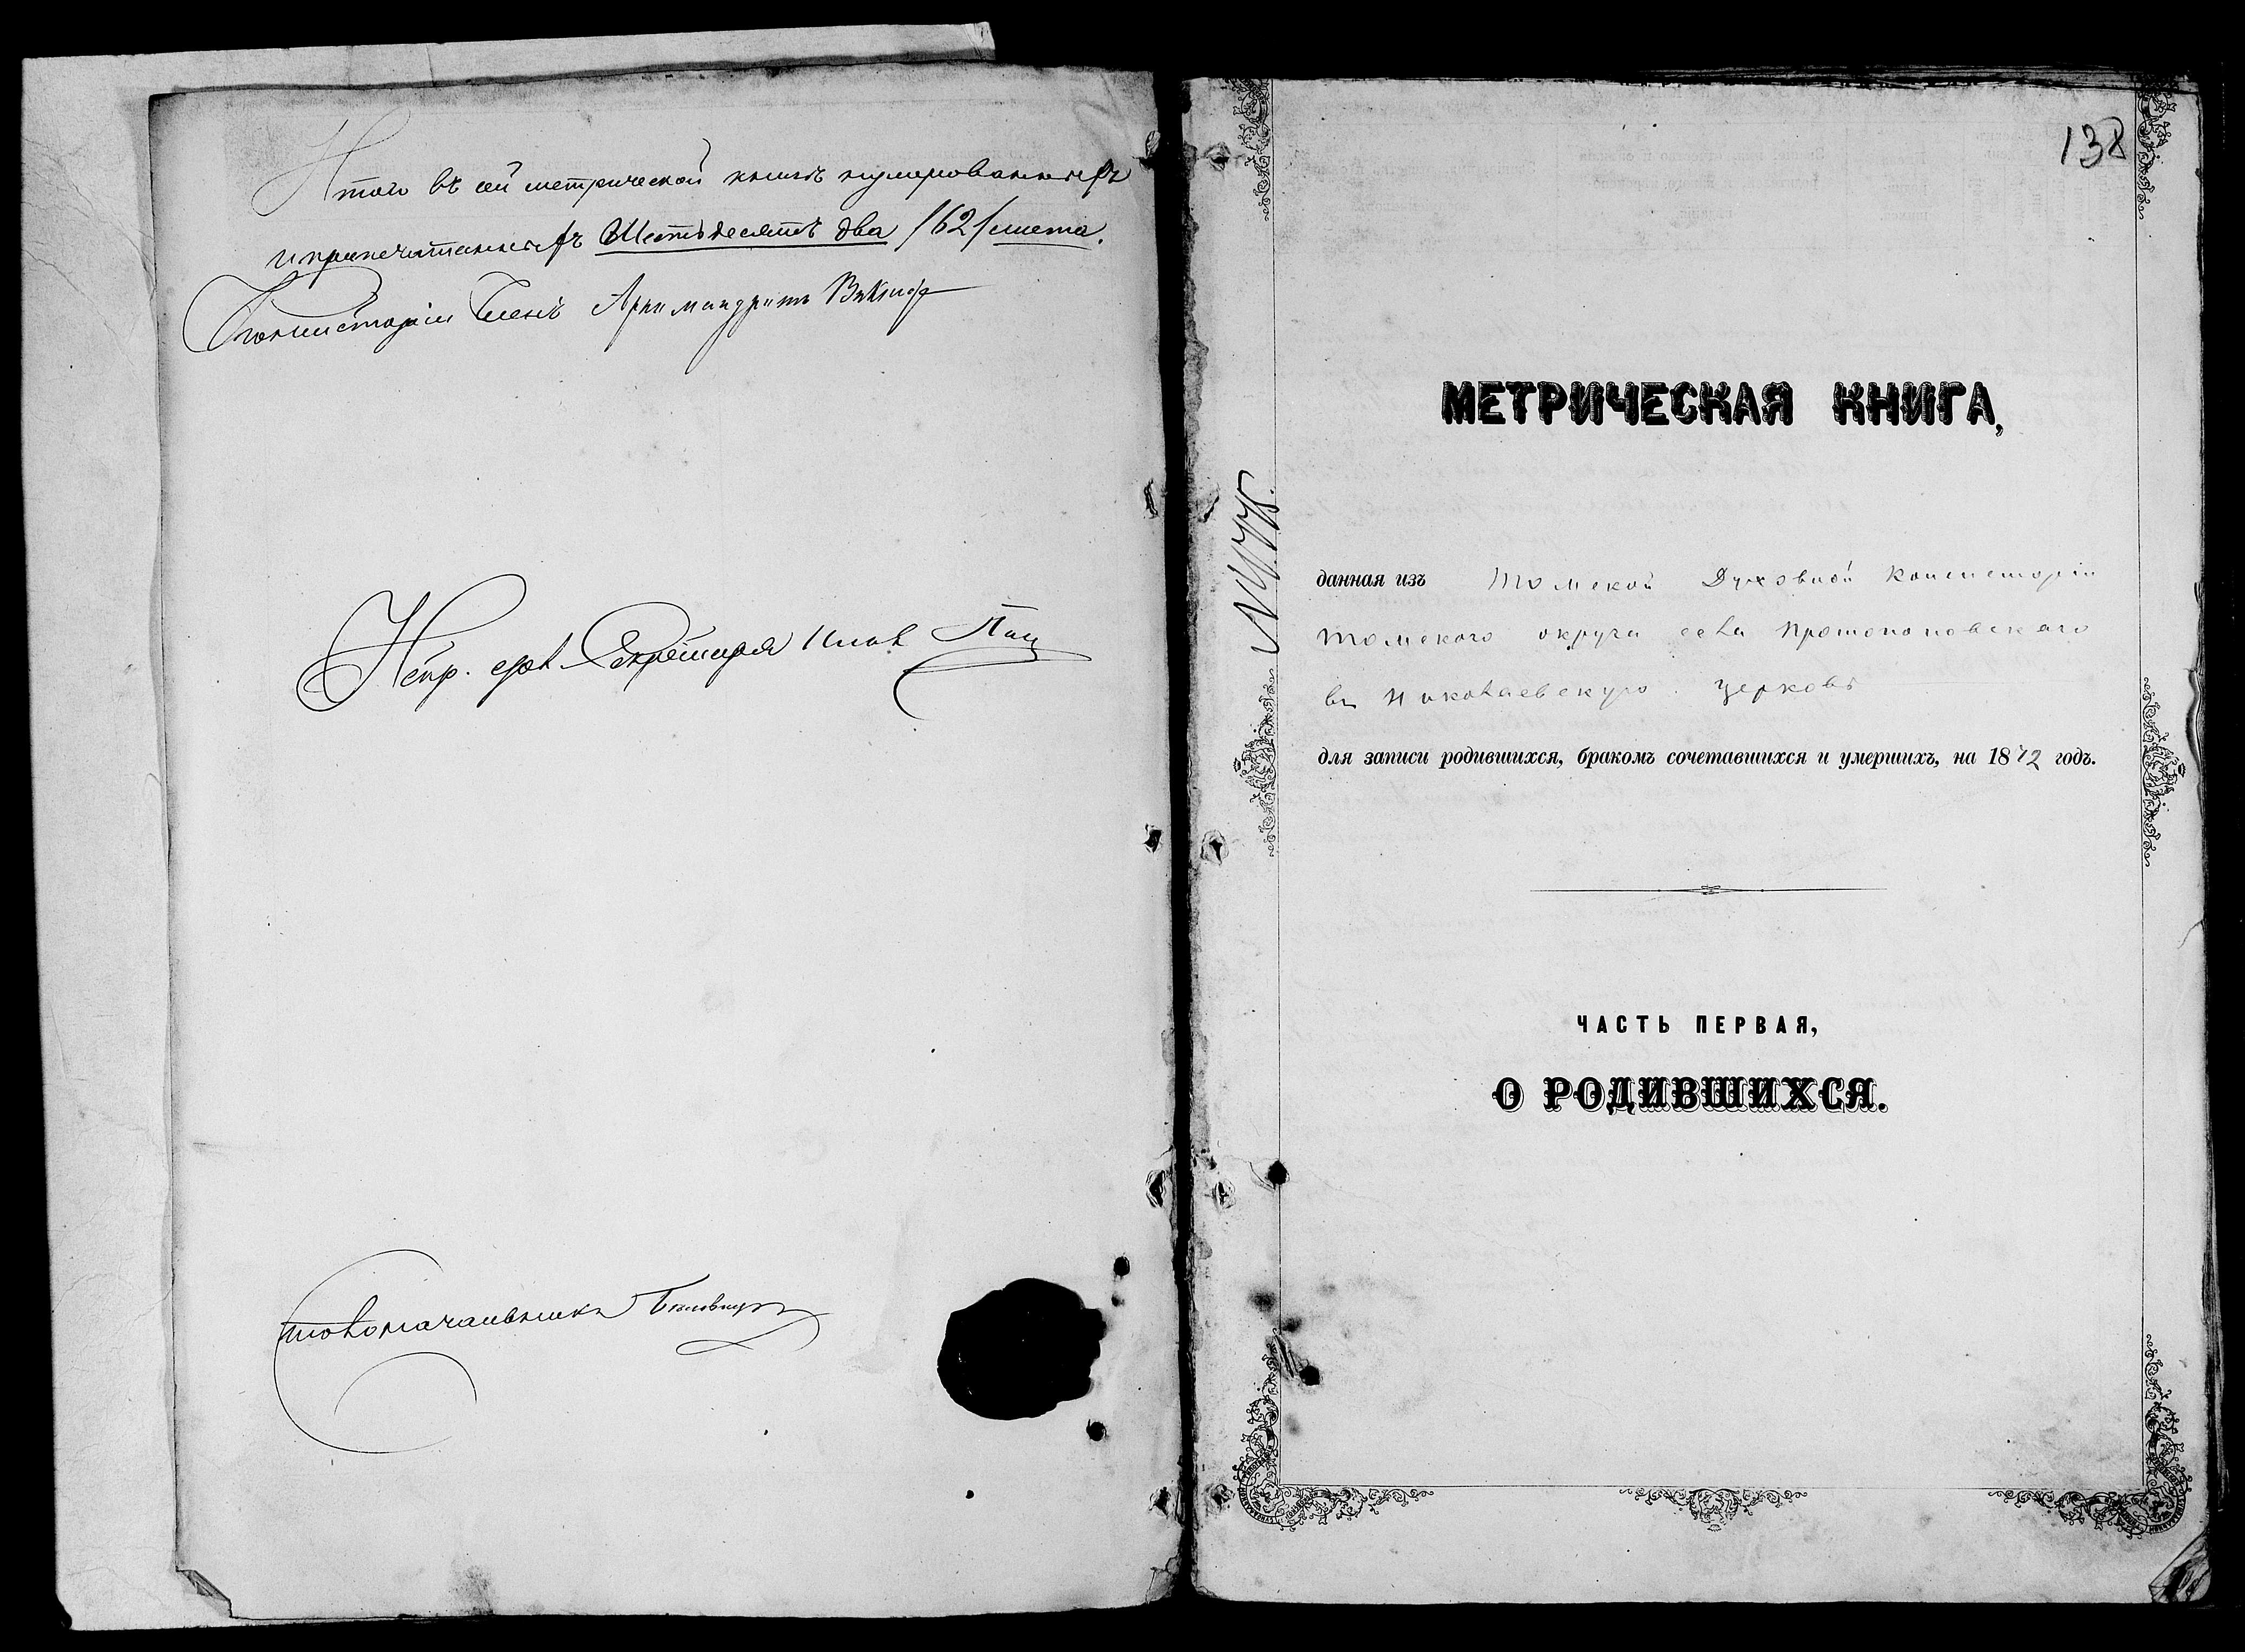 Итого въ сей метрической книгѣ нумерованныхъ
и припечатанныхъ Шестьдесятъ два /62/ листа.
Консисторіи Членъ Архимандритъ Викторъ
Испр. дол. Секретаря
Столоначальника
138
МЕТРИЧЕСКАЯ КНИГА,
данная изъ Томской Духовной Консисторіи
Томскаго округа села Протопоповскаго
въ Николаевскую церковь
для записи родившихся, бракомъ сочетавшихся и умершихъ, на 1872 годъ.
ЧАСТЬ ПЕРВАЯ,
О РОДИВШИХСЯ.